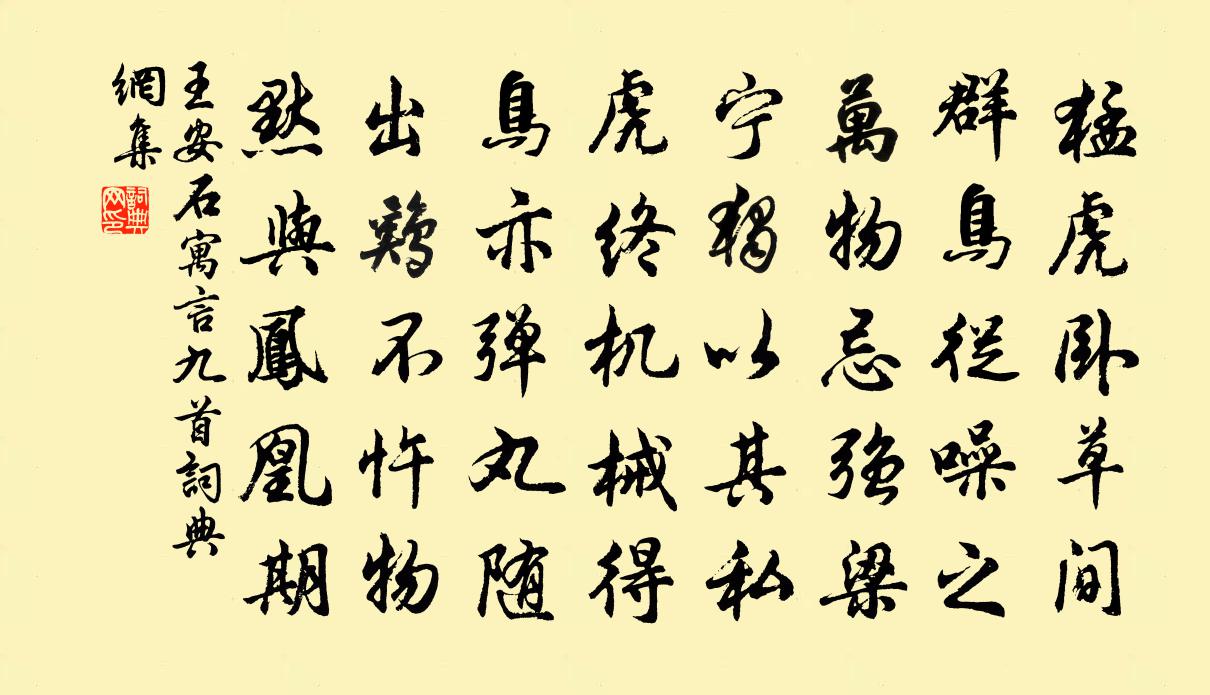 猛虎卧草间
群鳥從噪之
萬物忌強梁
宁獨以其私
虎终机械得
鳥亦弹丸随
出鷄不忤物
默與鳳凰期
王安石寓言九首詞典
網集
詞典
网印